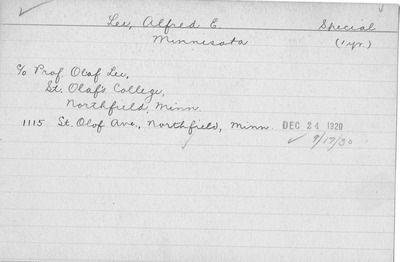 Lee, Alfred E. Special
Minnesota (1 yr.)
c/o Prof. Olaf Lee,
St. Olaf's College,
Northfield, Minn.
1115 St. Olof Ave., Northfield, Minn. DEC 24 1920
✓ 9/17/30